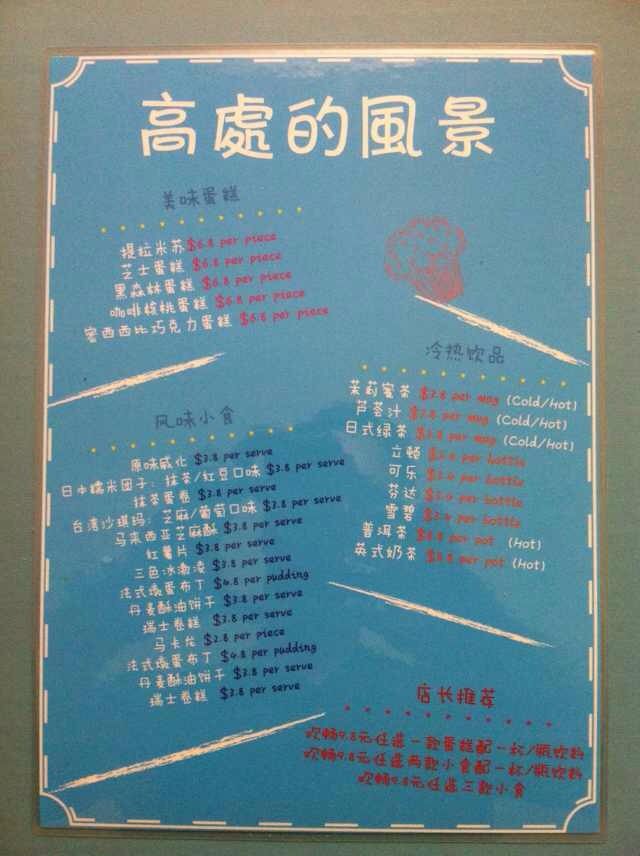 高處的風景
美味蛋糕
提拉米苏 $6.8 per piece
芝士蛋糕 $6.8 per piece
黑森林蛋糕 $6.8 per piece
咖啡核桃蛋糕 $6.8 per piece
密西西比巧克力蛋糕 $6.8 per piece
风味小食
原味威化 $3.8 per serve
日本糯米团子：抹茶/红豆口味 $3.8 per serve
抹茶蛋卷 $3.8 per serve
台湾沙琪玛：芝麻/葡萄口味 $3.8 per serve
马来西亚芝麻酥 $3.8 per serve
红薯片 $3.8 per serve
三色冰激凌 $3.8 per serve
法式燉蛋布丁 $4.8 per pudding
丹麦酥油饼干 $3.8 per serve
瑞士卷糕 $3.8 per serve
马卡龙 $2.8 per piece
法式燉蛋布丁 $4.8 per pudding
丹麦酥油饼干 $3.8 per serve
瑞士卷糕 $3.8 per serve
冷热饮品
茉莉蜜茶 $3.8 per mug (Cold/Hot)
芦荟汁 $3.8 per mug (Cold/Hot)
日式绿茶 $3.8 per mug (Cold/Hot)
立顿 per bottle
可乐 per bottle
芬达 per bottle
雪碧 per bottle
普洱茶 per pot (Hot)
英式奶茶 per pot (Hot)
店长推荐
欢畅9.8元任选一款蛋糕配一杯/瓶饮料
欢畅9.8元任选两款小食配一杯/瓶饮料
欢畅9.8元任选三款小食